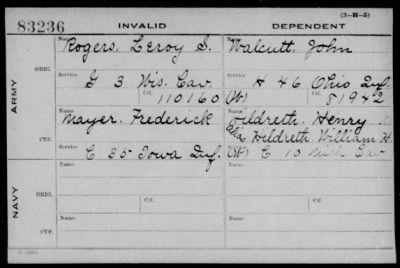 83236 INVALID DEPENDENT (3-H-5)
ARMY
ORIG.
Name Rogers, Leroy S. Name Walcutt, John
Service Service
G 3 Wis. Cav. H 46 Ohio Inf.
Ctf. 110160 (W) Ctf. 81942
CTF.
Name Mayer, Frederick Hildreth, Henry
alias Hildreth William H.
Service C 35 Iowa Inf. (W) C 10 Mich Cav
NAVY
ORIG.
Name Name
Service Ctf. Service Ctf.
CTF.
Name Name
Service Service